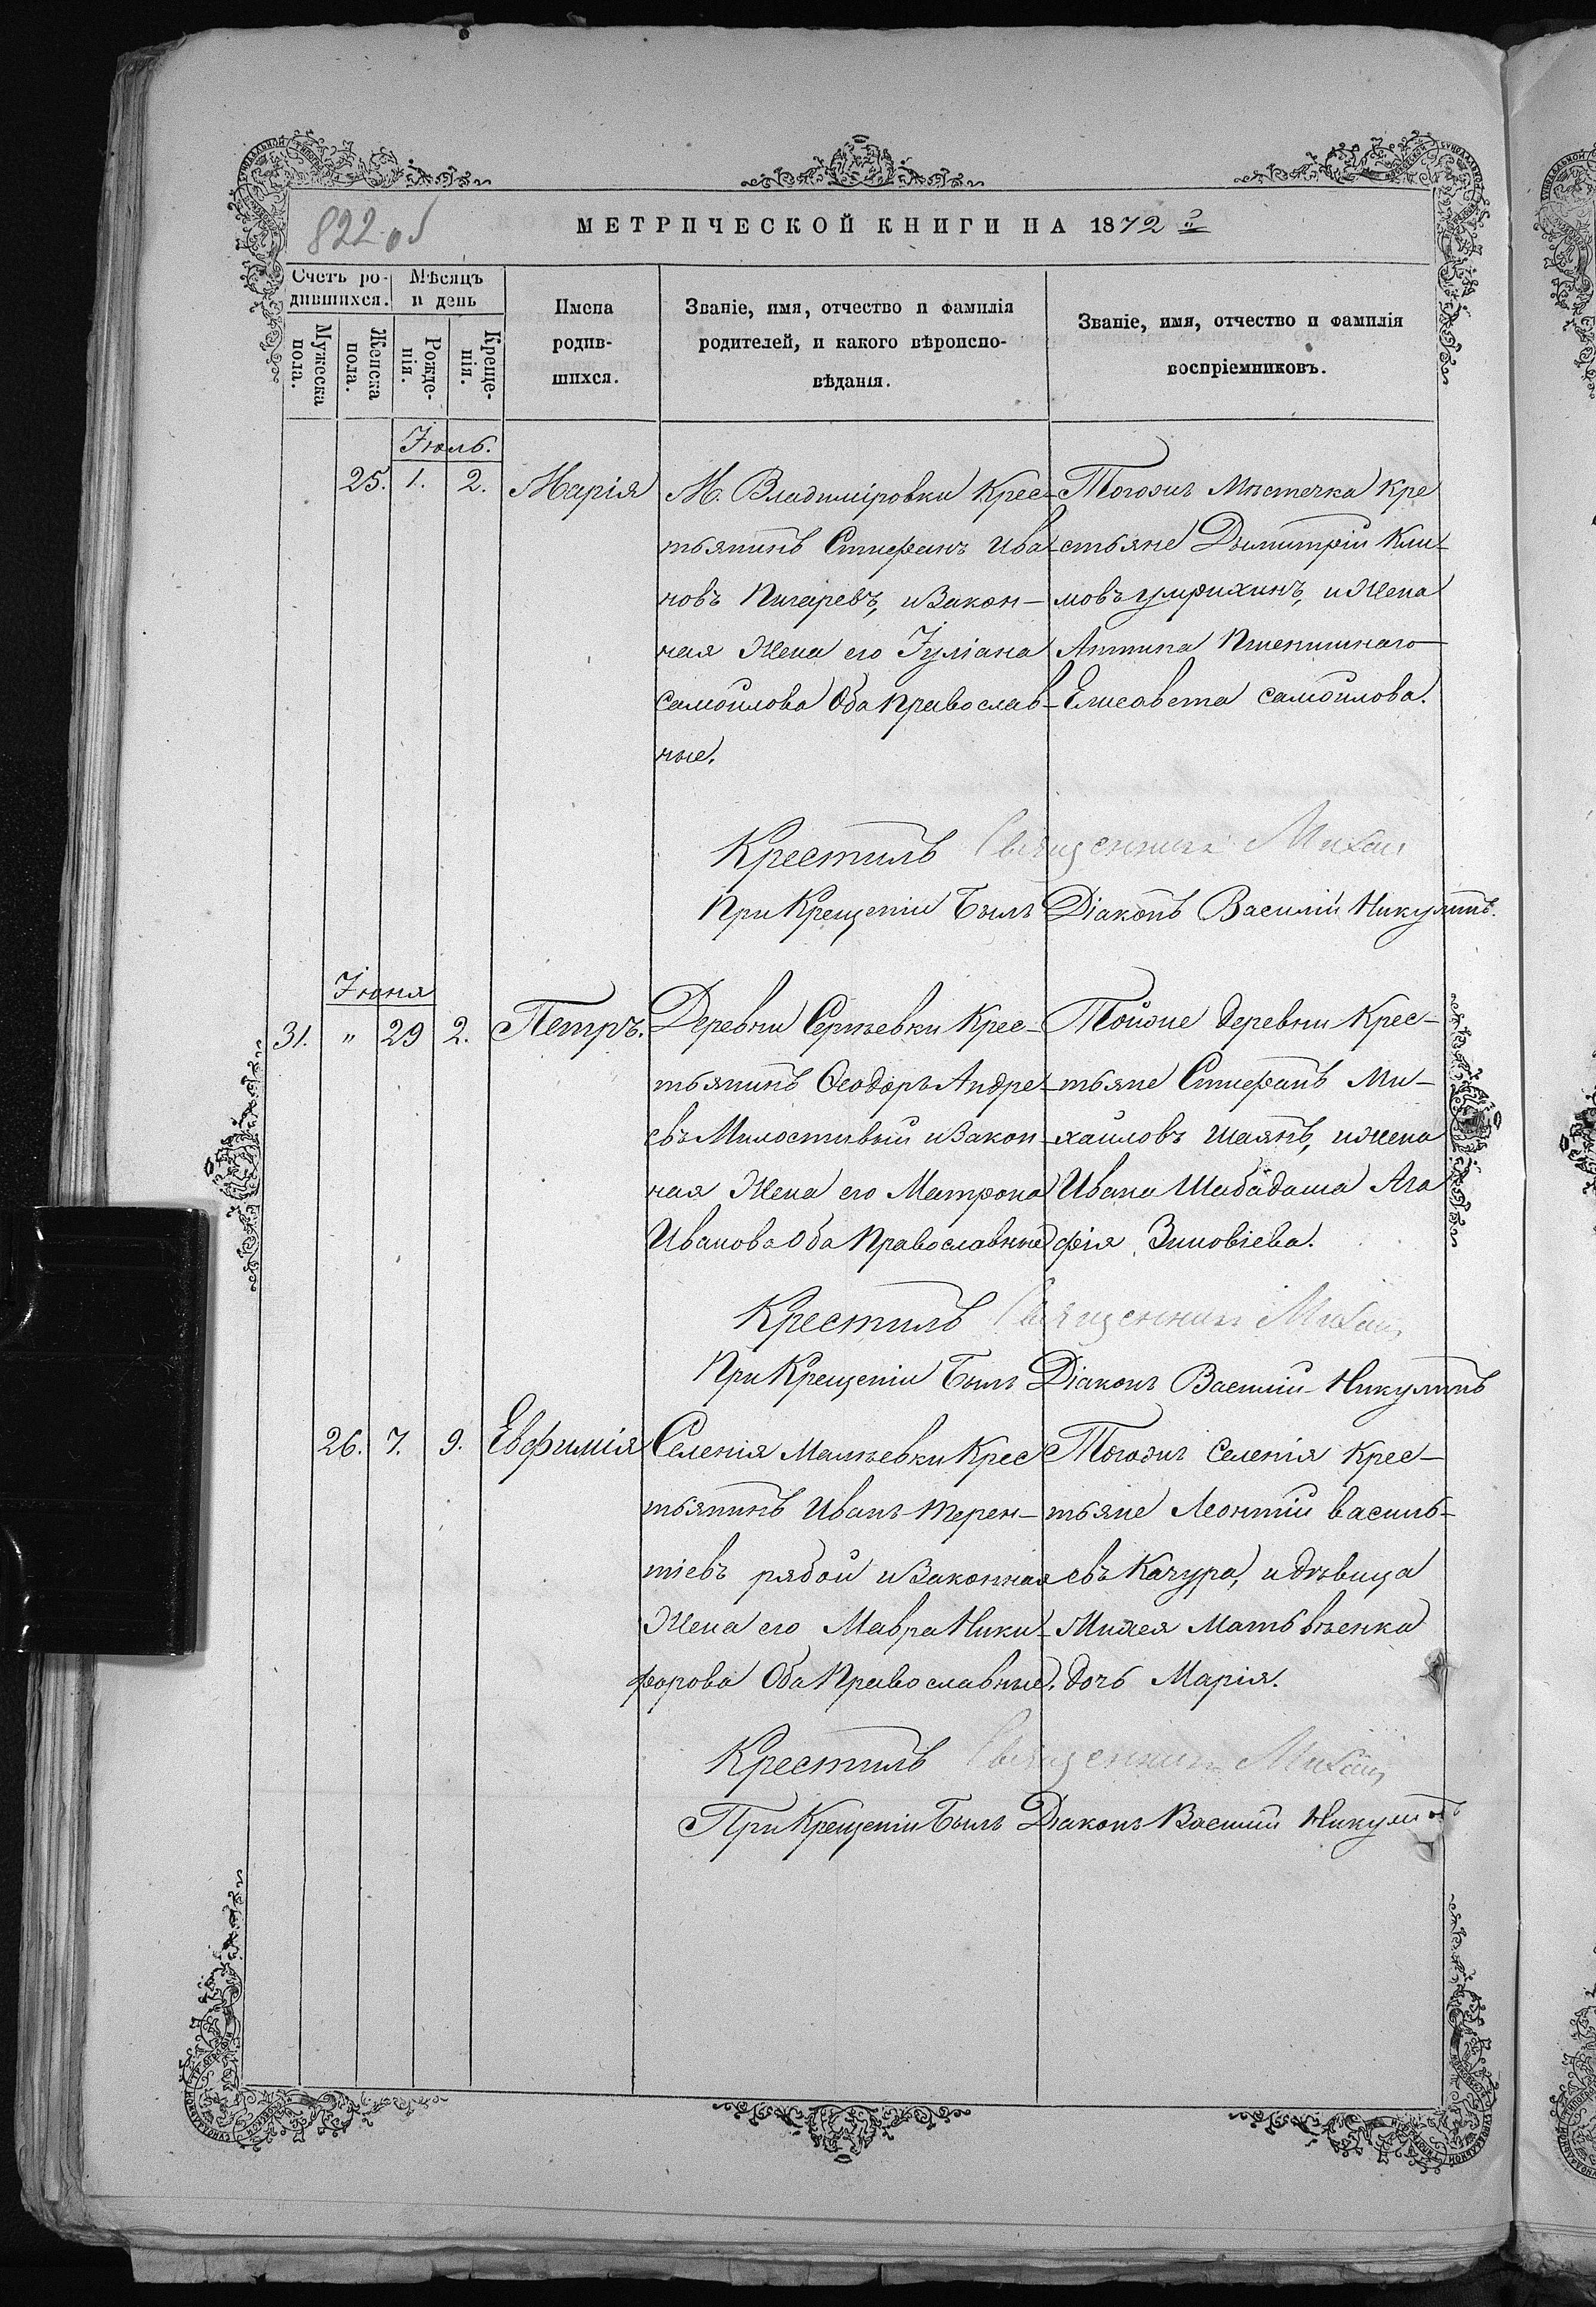 822 об
МЕТРИЧЕСКОЙ КНИГИ НА 1872 й
Счетъ ро-
дившихся.
Мѣсяцъ
и день
Мужеска
пола.
Женска
пола.
Рожде-
нія.
Креще-
нія.
Имена
родив-
шихся.
Званіе, имя, отчество и фамилія
родителей, и какого вѣроиспо-
вѣданія.
Званіе, имя, отчество и фамилія
воспріемниковъ.
Іюль.
25. 1. 2. Марія
М. Владиміровки Крес-
тьянинъ Стиефанъ Ива-
новъ Пигаревъ, и Закон-
ная Жена его Іуліана
Самойлова Оба Православ-
ные.
Тогожъ Мѣстечка Кре
стьяне Дымитрій Кли-
мовъ Умрихинъ, и Жена
Антипа Пшеничнаго
Елисавета Самойлова.
Крестилъ Священникъ Михаи
При Крещеніи Былъ Діаконъ Василій Никулинъ.
Іюня
31. " 29 2. Петръ.
Деревни Сергѣевки Крес-
тьянинъ Ѳеодоръ Андре-
евъ Милостивый и Закон-
ная Жена его Матрона
Иванова Оба Православные
Тойже деревни Крес-
тьяне Стиефанъ Ми-
хаиловъ Шаянъ, и жена
Ивана Шабадаша Ага
фія Зиновіева.
Крестилъ Священникъ Михаи
При Крещеніи Былъ Діаконъ Василій Никулинъ
26. 7. 9. Евфимія
Селенія Малѣевки Крес
тьянинъ Иванъ Терен-
тіевъ рябой и Законная
Жена его Мавра Ники-
форова Оба Православные.
Тогожъ Селенія Крес-
тьяне Леонтій Василь-
евъ Качура, и дѣвица
Михея Матьвѣенка
дочь Марія.
Крестилъ Священникъ Михаи
При Крещеніи Былъ Діаконъ Василій Никулинъ